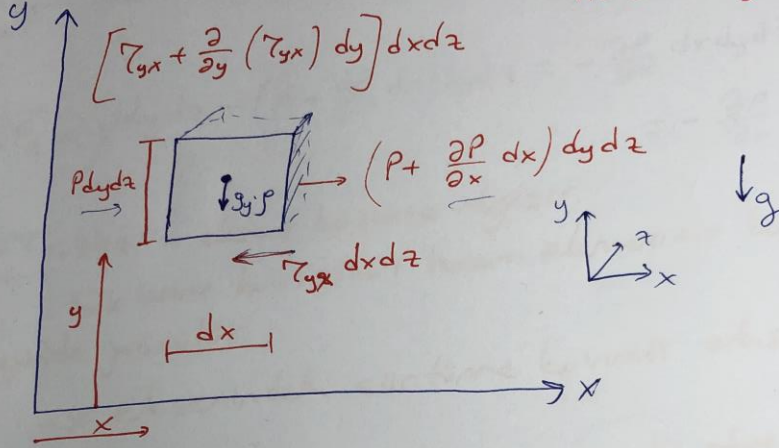 y
[τyx + ∂/∂y (τyx) dy] dxdz
Pdydz
gy·ρ
(P + ∂P/∂x dx) dydz
g
τyx dxdz
y
z
x
y
dx
x
x